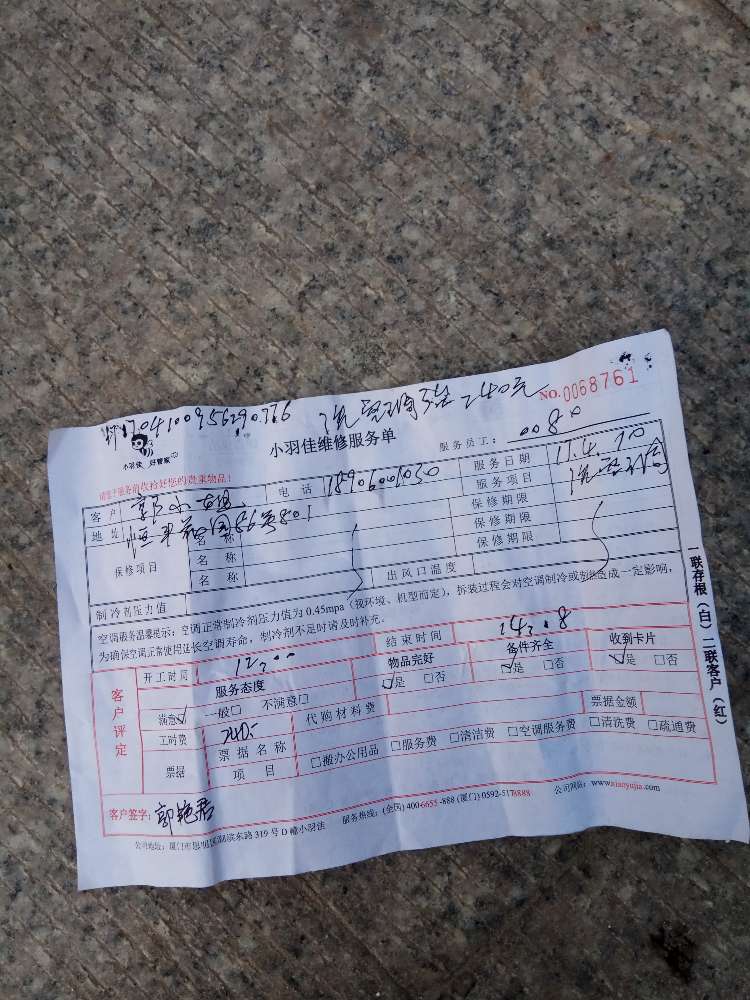 170410095629 240元
NO.0068761
小羽佳 好管家
小羽佳维修服务单
服务员工： 0080
请您于服务前收拾好您的贵重物品！
客户 郭小姐 电话 18906001030 服务日期 17.4.10
地址 恒丰花园86号801 服务项目
保修项目 名称 保修期限
名称 保修期限
名称 保修期限
制冷剂压力值 出风口温度
空调服务温馨提示：空调正常制冷剂压力值为 0.45mpa（视环境、机型而定），拆装过程会对空调制冷或造成一定影响，
为确保空调正常使用延长空调寿命，制冷剂不足时请及时补充.
客户评定
开工时间 12:00 结束时间 14:08
服务态度 物品完好 备件齐全 收到卡片
满意☑ 一般□ 不满意□ ☑是 □否 ☑是 □否 ☑是 □否
工时费 240- 代购材料费
票据 票据名称 票据金额
项目 □搬办公用品 □服务费 □清洁费 □空调服务费 □清洗费 □疏通费
客户签字：郭艳君
公司地址：厦门市思明区湖滨东路 319 号 D 幢小羽佳 服务热线：(全国) 400-6655-888 (厦门) 0592-5178888 公司网站：www.xiaoyujia.com
一联存根（白）二联客户（红）